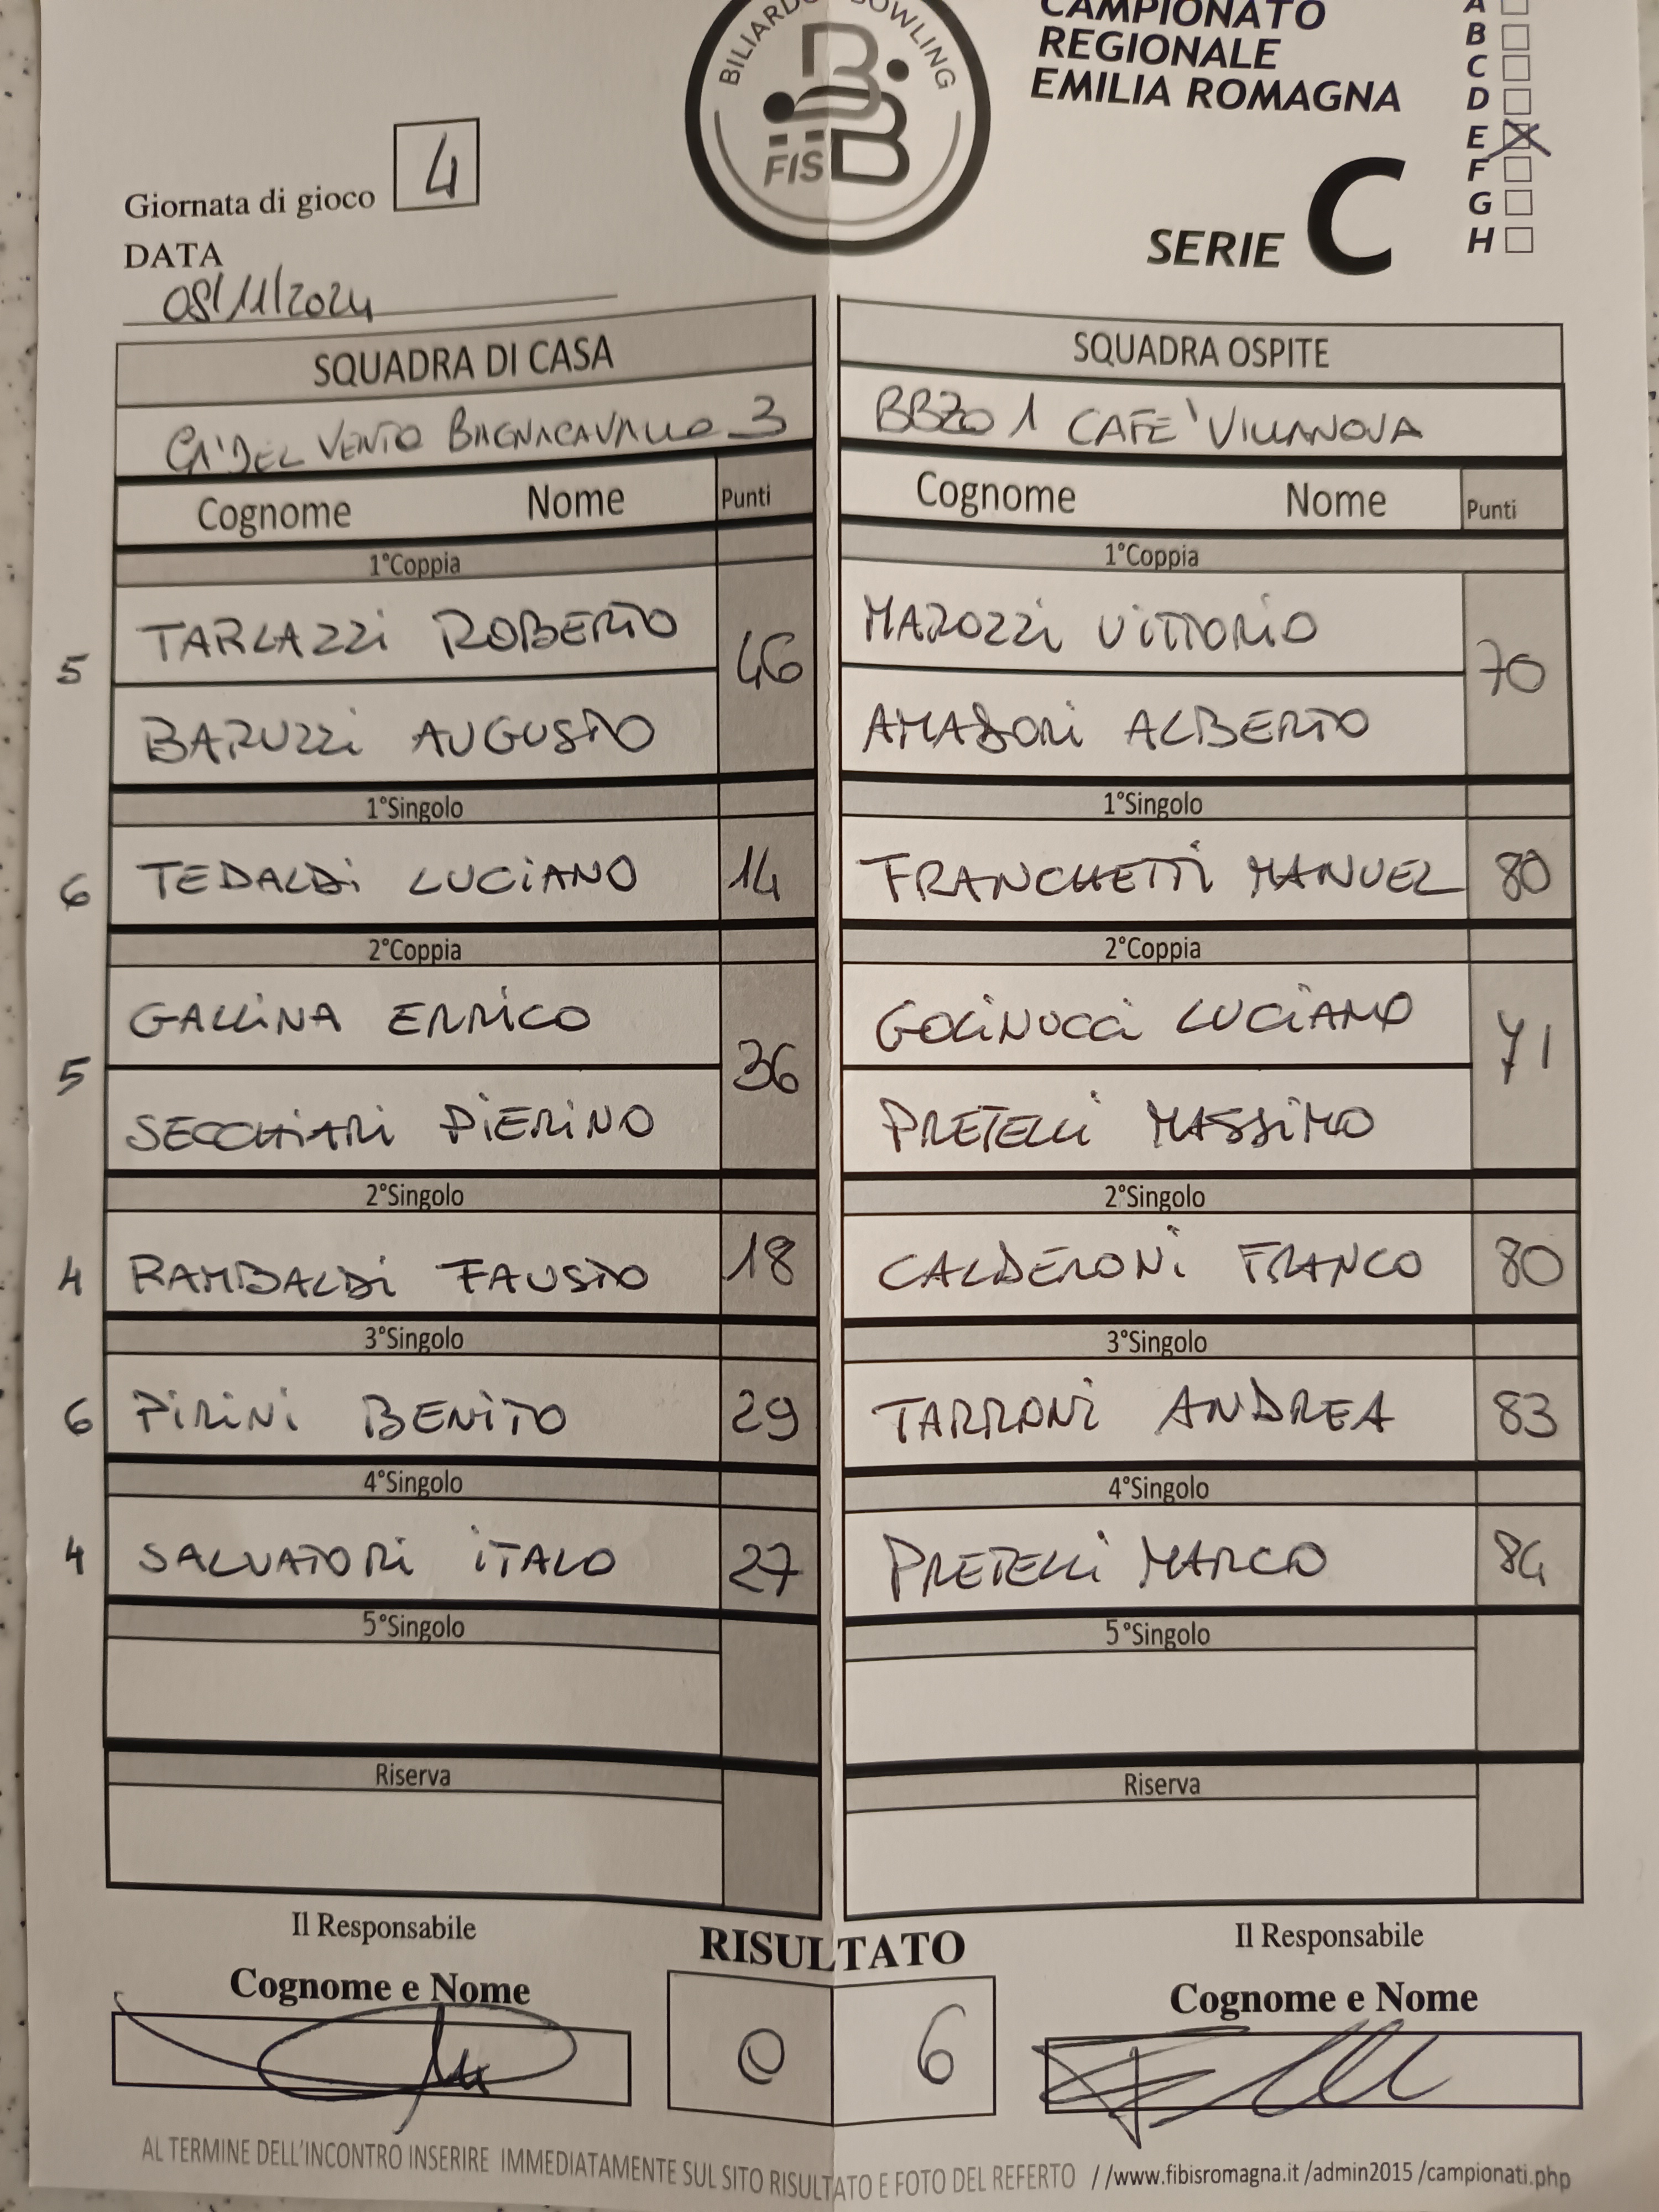 BILIARDO BOWLING
FISBB
CAMPIONATO
REGIONALE
EMILIA ROMAGNA
SERIE C
A
B
C
D
E X
F
G
H
Giornata di gioco 4
DATA
08/11/2024
SQUADRA DI CASA SQUADRA OSPITE
CA' DEL VENTO BAGNACAVALLO 3 BBZO 1 CAFE' VILLANOVA
Cognome Nome Punti Cognome Nome Punti
1°Coppia 1°Coppia
TARLAZZI ROBERTO MAROZZI VITTORIO
5 46 70
BARUZZI AUGUSTO AMADORI ALBERTO
1°Singolo 1°Singolo
6 TEDALDI LUCIANO 14 FRANCHETTI MANUEL 80
2°Coppia 2°Coppia
GALLINA ERRICO GOLINUCCI LUCIANO
5 36 71
SECCHIARI PIERINO PRETELLI MASSIMO
2°Singolo 2°Singolo
4 RAMBALDI FAUSTO 18 CALDERONI FRANCO 80
3°Singolo 3°Singolo
6 PIRINI BENITO 29 TARRONI ANDREA 83
4°Singolo 4°Singolo
4 SALVATORI ITALO 27 PRETELLI MARCO 84
5°Singolo 5°Singolo
Riserva Riserva
Il Responsabile RISULTATO Il Responsabile
Cognome e Nome Cognome e Nome
0 6
AL TERMINE DELL'INCONTRO INSERIRE IMMEDIATAMENTE SUL SITO RISULTATO E FOTO DEL REFERTO //www.fibisromagna.it /admin2015 /campionati.php